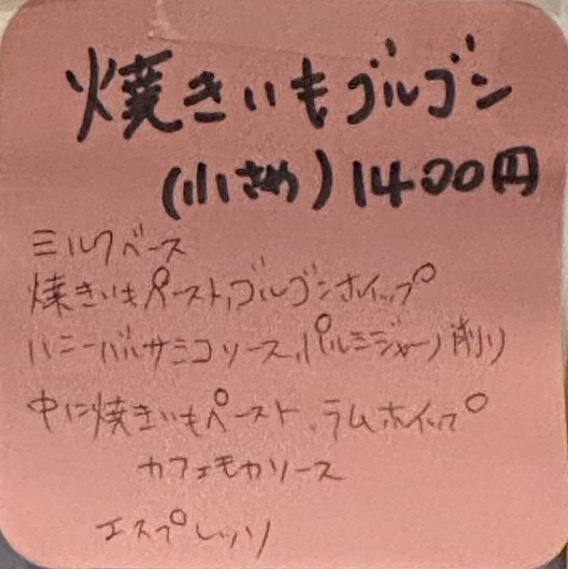 焼きいもゴルゴン
(小さめ) 1400円
ミルクベース
焼きいもペースト、ゴルゴンホイップ
ハニーバルサミコソース、パルミジャーノ削り
中に焼きいもペースト、ラムホイップ
カフェモカソース
エスプレッソ